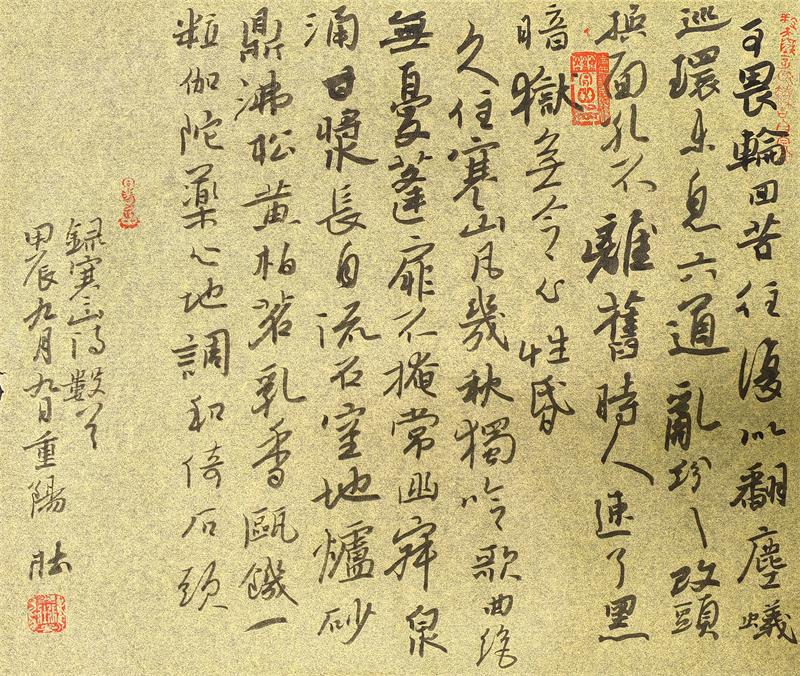 可畏輪回苦往復似翻塵蟻
巡環未息六道亂紛〻改頭
換面孔不離舊時人速了黑
暗獄無令心性昏
久住寒山凡幾秋獨吟歌曲絕
無憂蓬扉不掩常幽寂泉
涌甘漿長自流石室地爐砂
鼎沸松黃柏茗乳香甌饑一
粒伽陀藥心地調和倚石頭
録寒山詩數首
甲辰九月九日重陽